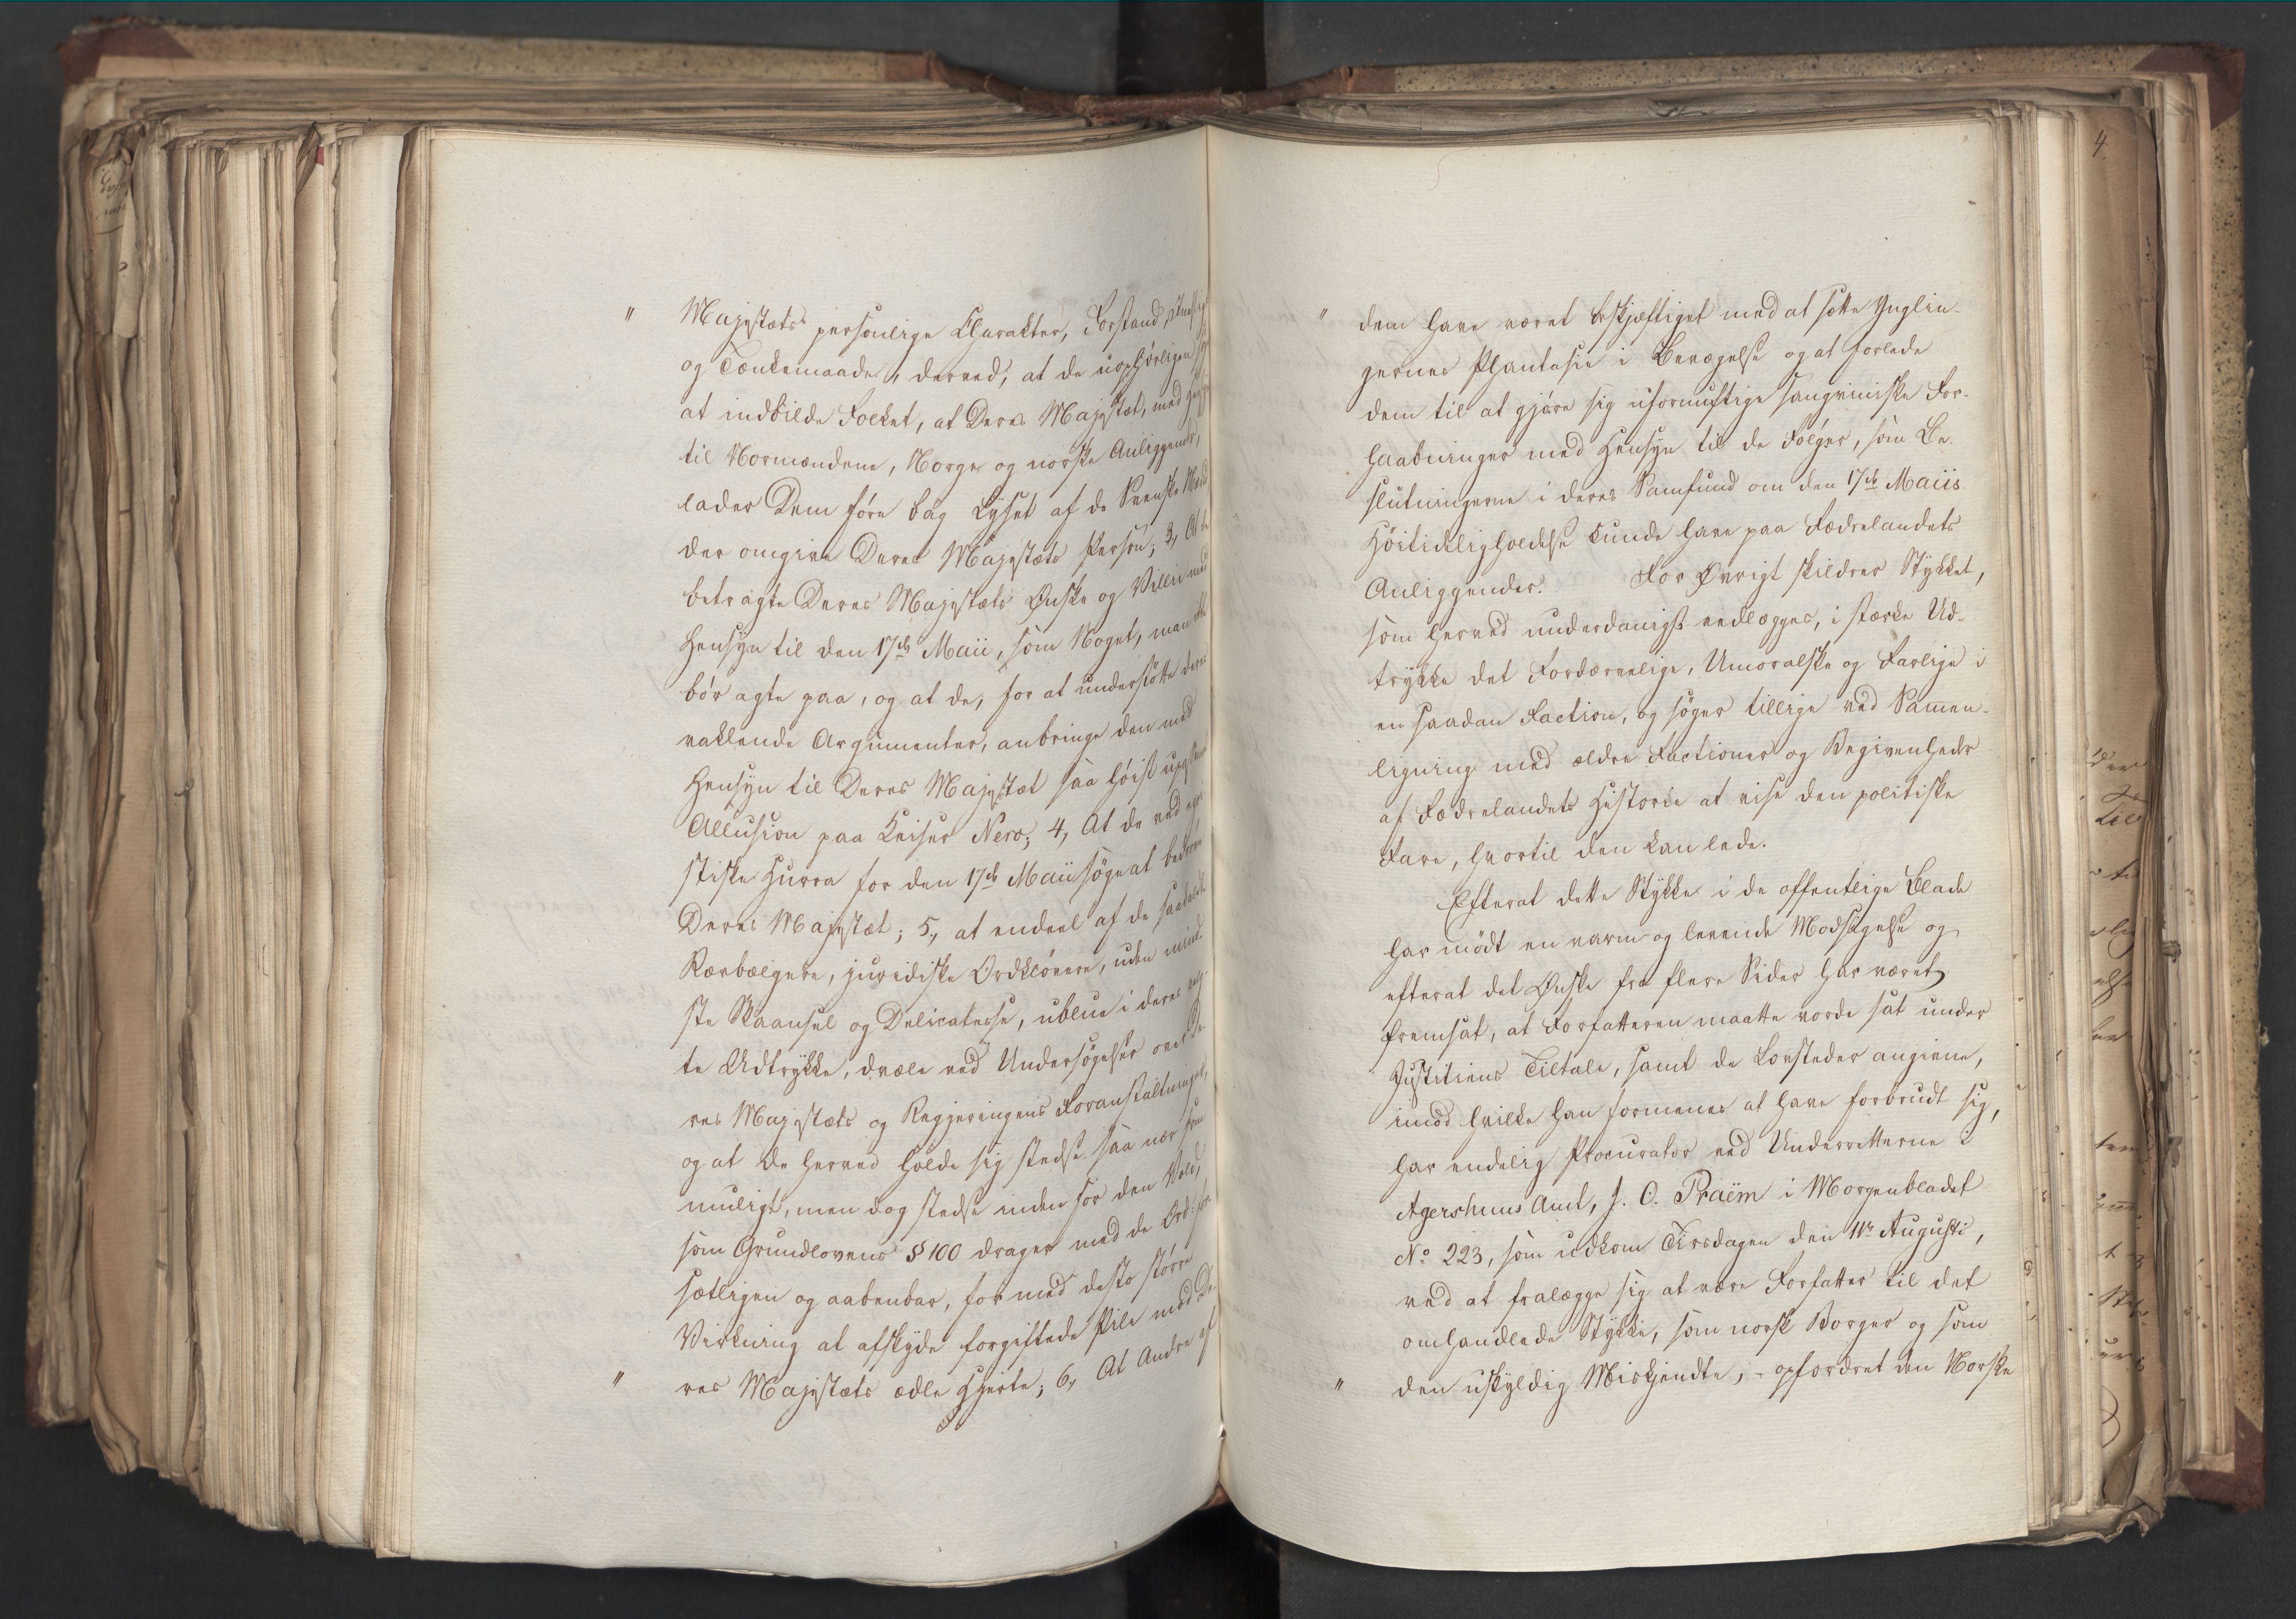 " Majestæts personlige Charakter, Forstand,
og Tænkemaade, derved, at de uophørligen
at indbilde Folket, at Deres Majestæt, med
til Normændene, Norge og norske Anliggender,
lader Dem føre bag Lyset af de Svenske
der omgive Deres Majestæts Person; 3, At
betragte Deres Majestæts Ønske og Villie med
Hensyn til den 17de Maii, som Noget, man ikke
bør agte paa, og at de, for at understøtte deres
vaklende Argumenter, anbringe den med
Hensyn til Deres Majestæt saa høist
Allusion paa Keiser Nero; 4, At de ved
stiske Hurra for den 17de Maii søge at bedrøve
Deres Majestæt; 5, at endeel af de saakaldte
Rævbælgere, juridiske Ordkløvere, uden mind-
ste Skaansel og Delicatesse, ublue i deres
te Udtrykke, dvæle ved Undersøgelser over De-
res Majestæts og Regjeringens Foranstaltninger,
og at de herved holde sig stedse saa nær som
muligt, men dog stedse inden for den Vold,
som Grundlovens § 100 drager med de Ord: for-
sætligen og aabenbar, for med desto større
Virkning at afskyde forgiftede Pile mod De-
" res Majestæts ædle Hjerte; 6, At Andre af
" dem have været beskjæftiget med at sætte Ynglin-
gernes Phantasie i Bevægelse og at forlede
dem til at gjøre sig ufornuftige sangviniske For-
haabninger med Hensyn til de Følger, som Be-
slutningerne i deres Samfund om den 17de Maiis
Høitideligholdelse kunde have paa Fædrelandets
Anliggender. For Øvrigt skildrer Stykket,
som herved underdanigst vedlægges, i stærke Ud-
trykke det Fordærvelige, Umoralske og Farlige i
en saadan Faction, og søger tillige ved Sammen-
ligning med ældre Factioner og Begivenheder
af Fædrelandets Historie at vise den politiske
Fare, hvortil den kan lede.
Efterat dette Stykke i de offentlige Blade
har mødt en varm og levende Modsigelse og
efterat det Ønske fra flere Sider har været
fremsat, at Forfatteren maatte vorde sat under
Justitiens Tiltale, samt de Lovsteder angivne,
imod hvilke han formenes at have forbrudt sig,
har endelig Procurator ved Underretterne i
Agershuus Amt, J. C. Praëm i Morgenbladet
No 223, som udkom Tirsdagen den 11te Augusti,
ved at fralægge sig at være Forfatter til det
omhandlede Stykke, som norsk Borger og som
" den uskyldig Miskjendte, - opfordret den Norske
4.